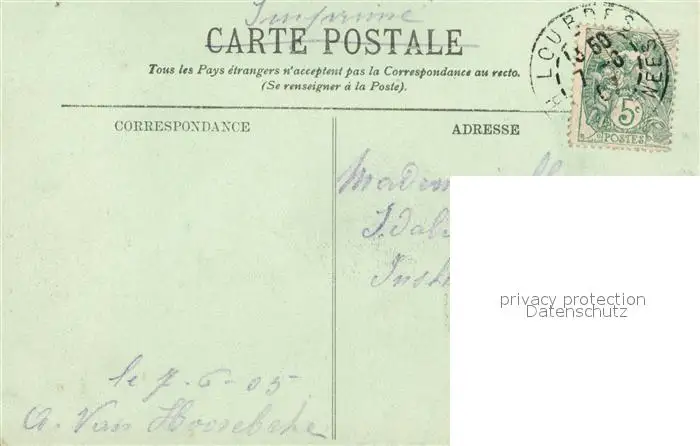 Imprimé
CARTE POSTALE
Tous les Pays étrangers n'acceptent pas la Correspondance au recto.
(Se renseigner à la Poste).
LOURDES
5c
POSTES
CORRESPONDANCE
ADRESSE
privacy protection
Datenschutz
le 7-6-05
A. Van